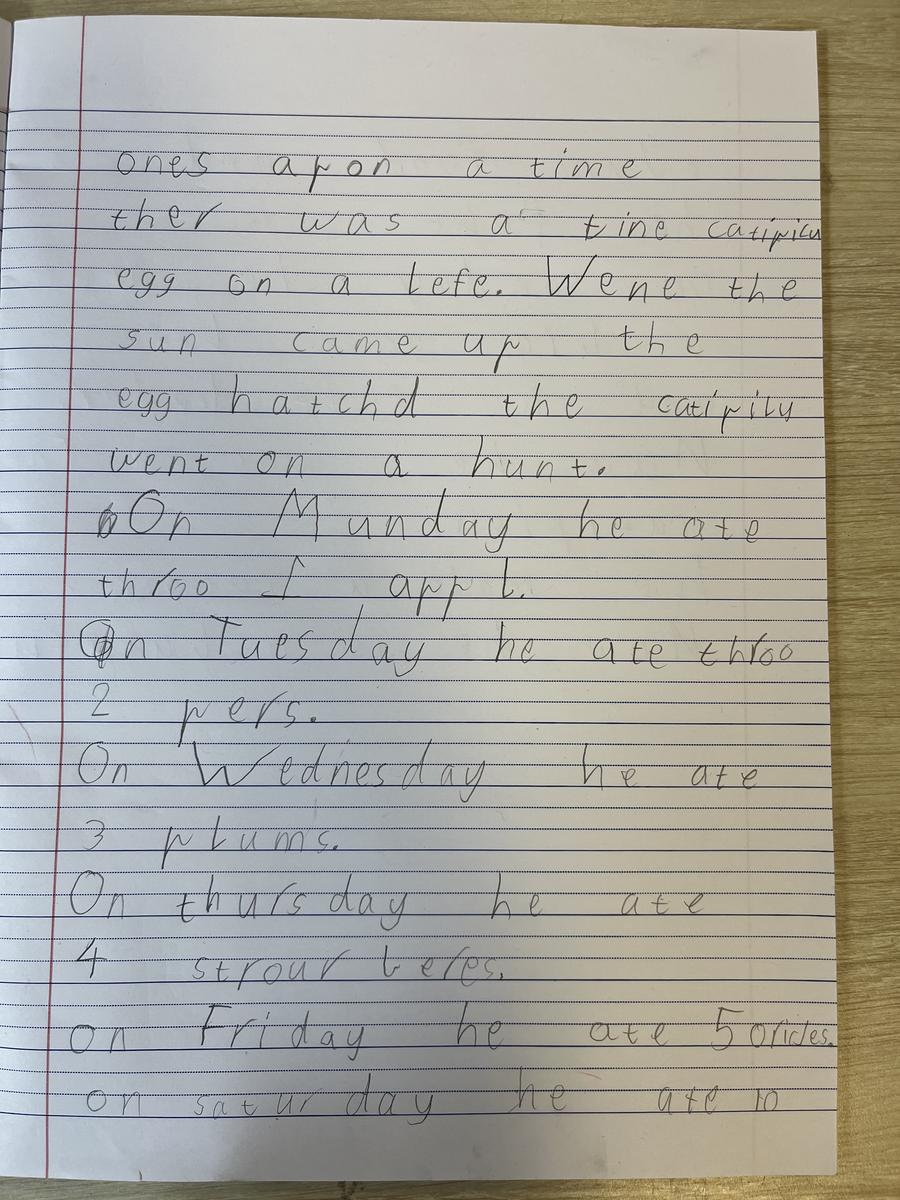 ones apon a time
ther was a tine catipilu
egg on a lefe. Wene the
sun came up the
egg hatchd the catipilu
went on a hunt.
On Munday he ate
throo 1 appl.
On Tuesday he ate throo
2 pers.
On Wednesday he ate
3 plums.
On thursday he ate
4 strour beres.
on Friday he ate 5 oricles.
on saturday he ate 10